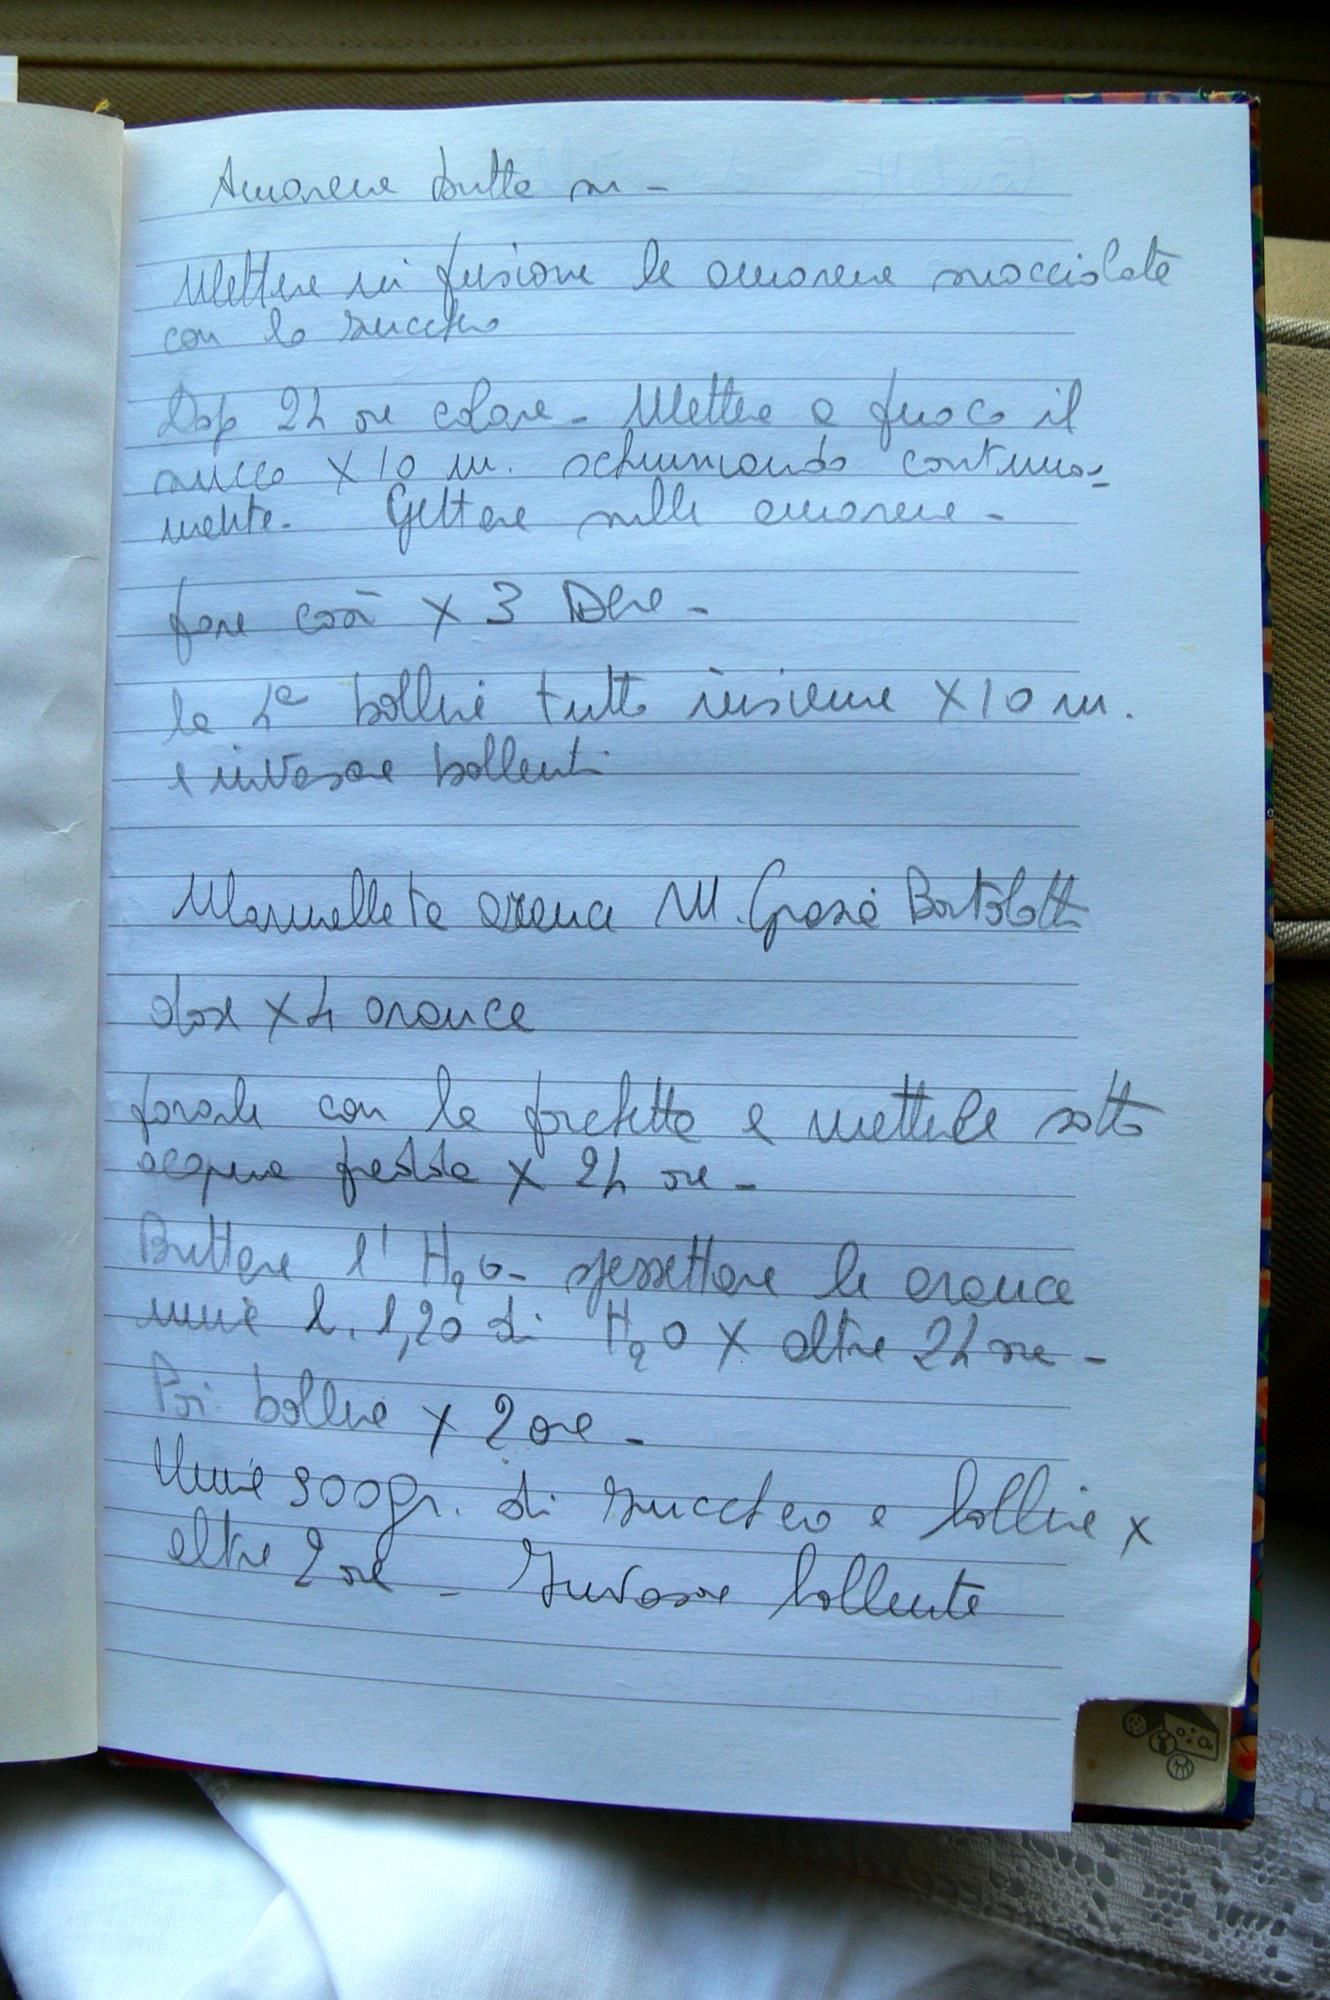 Amarene butta su -
Mettere in fusione le amarene snocciolate
con lo zucchero
Dopo 24 ore colare - Mettere a fuoco il
succo X 10 m. schiumando continua=
mente. Gettare sulle amarene -
fare così X 3
la 4a bollire tutto insieme X 10 m.
e invasare bollenti
Marmellata arance M. Grazia Bortolotti
dose X 4 arance
forarle con la forchetta e metterle sotto
acqua fredda X 24 ore -
Buttare l' H2O - spezzettare le arance
unire l. 1,20 di H2O X altre 24 ore -
Poi bollire X 2 ore -
Unire 900 gr. di zucchero e bollire x
altre 2 ore - Invasare bollente